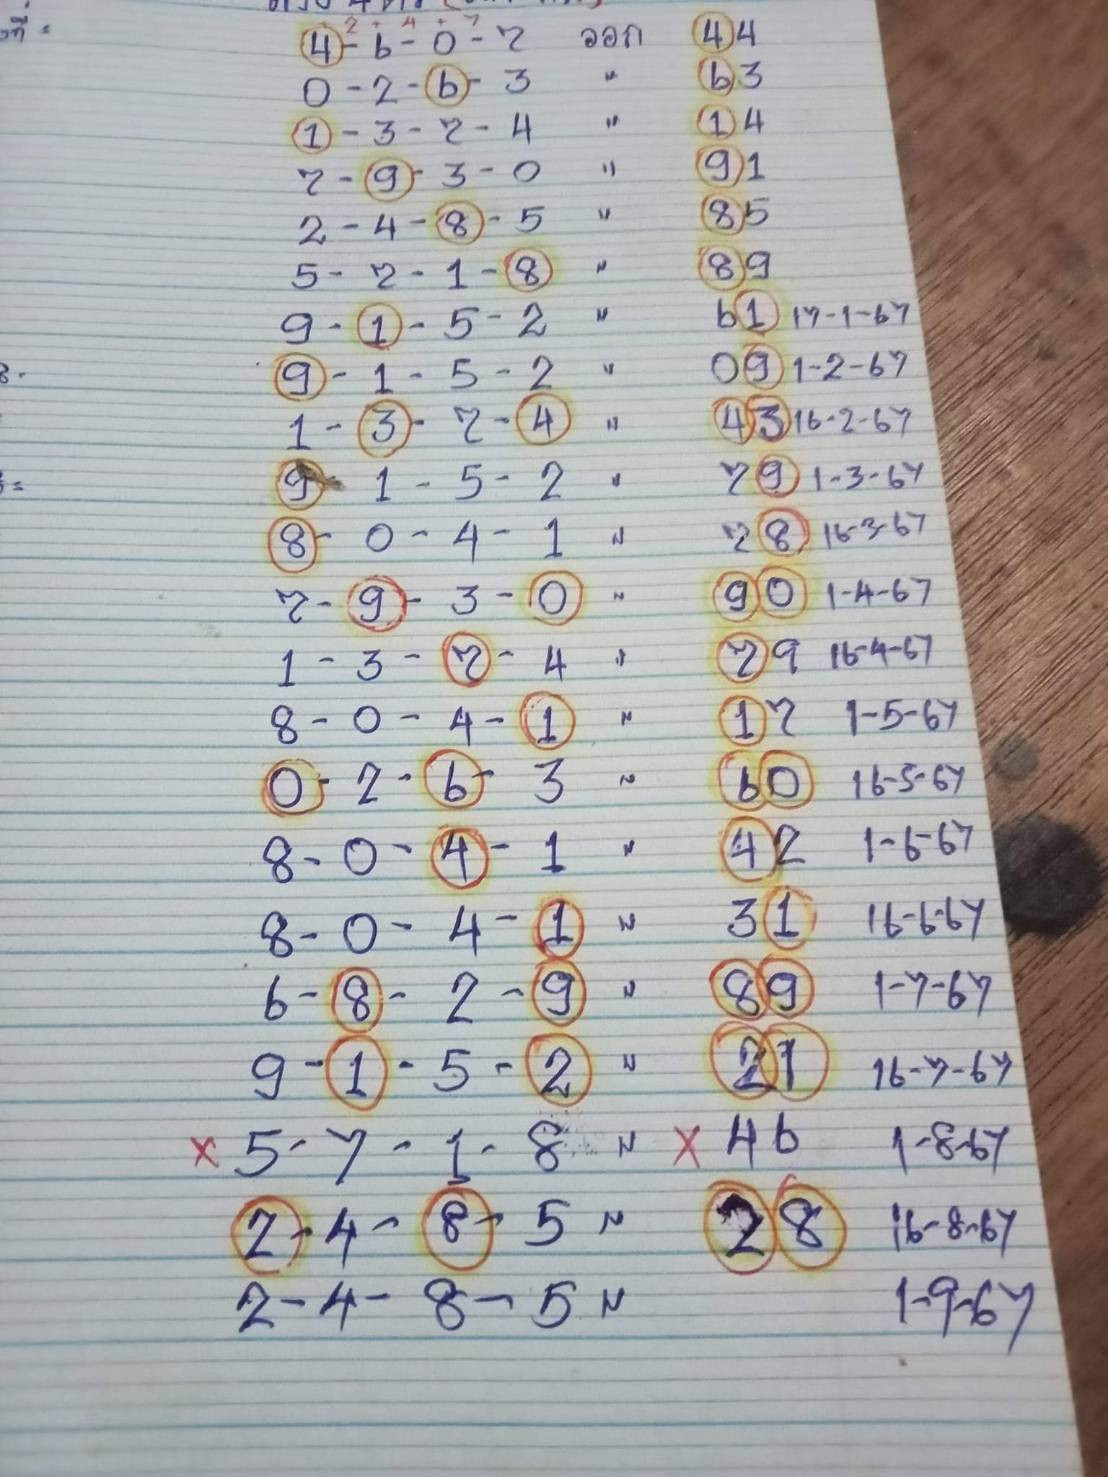 +2 +4 +7
4-6-0-7 ออก 44
0-2-6-3 " 63
1-3-7-4 " 14
7-9-3-0 " 91
2-4-8-5 " 85
5-7-1-8 " 89
9-1-5-2 " 61 17-1-67
9-1-5-2 " 09 1-2-67
1-3-7-4 " 43 16-2-67
9-1-5-2 " 79 1-3-67
8-0-4-1 " 78 16-3-67
7-9-3-0 " 90 1-4-67
1-3-7-4 " 79 16-4-67
8-0-4-1 " 17 1-5-67
0-2-6-3 " 60 16-5-67
8-0-4-1 " 42 1-6-67
8-0-4-1 " 31 16-6-67
6-8-2-9 " 89 1-7-67
9-1-5-2 " 21 16-7-67
× 5-7-1-8 " × 46 1-8-67
2-4-8-5 " 28 16-8-67
2-4-8-5 " 1-9-67